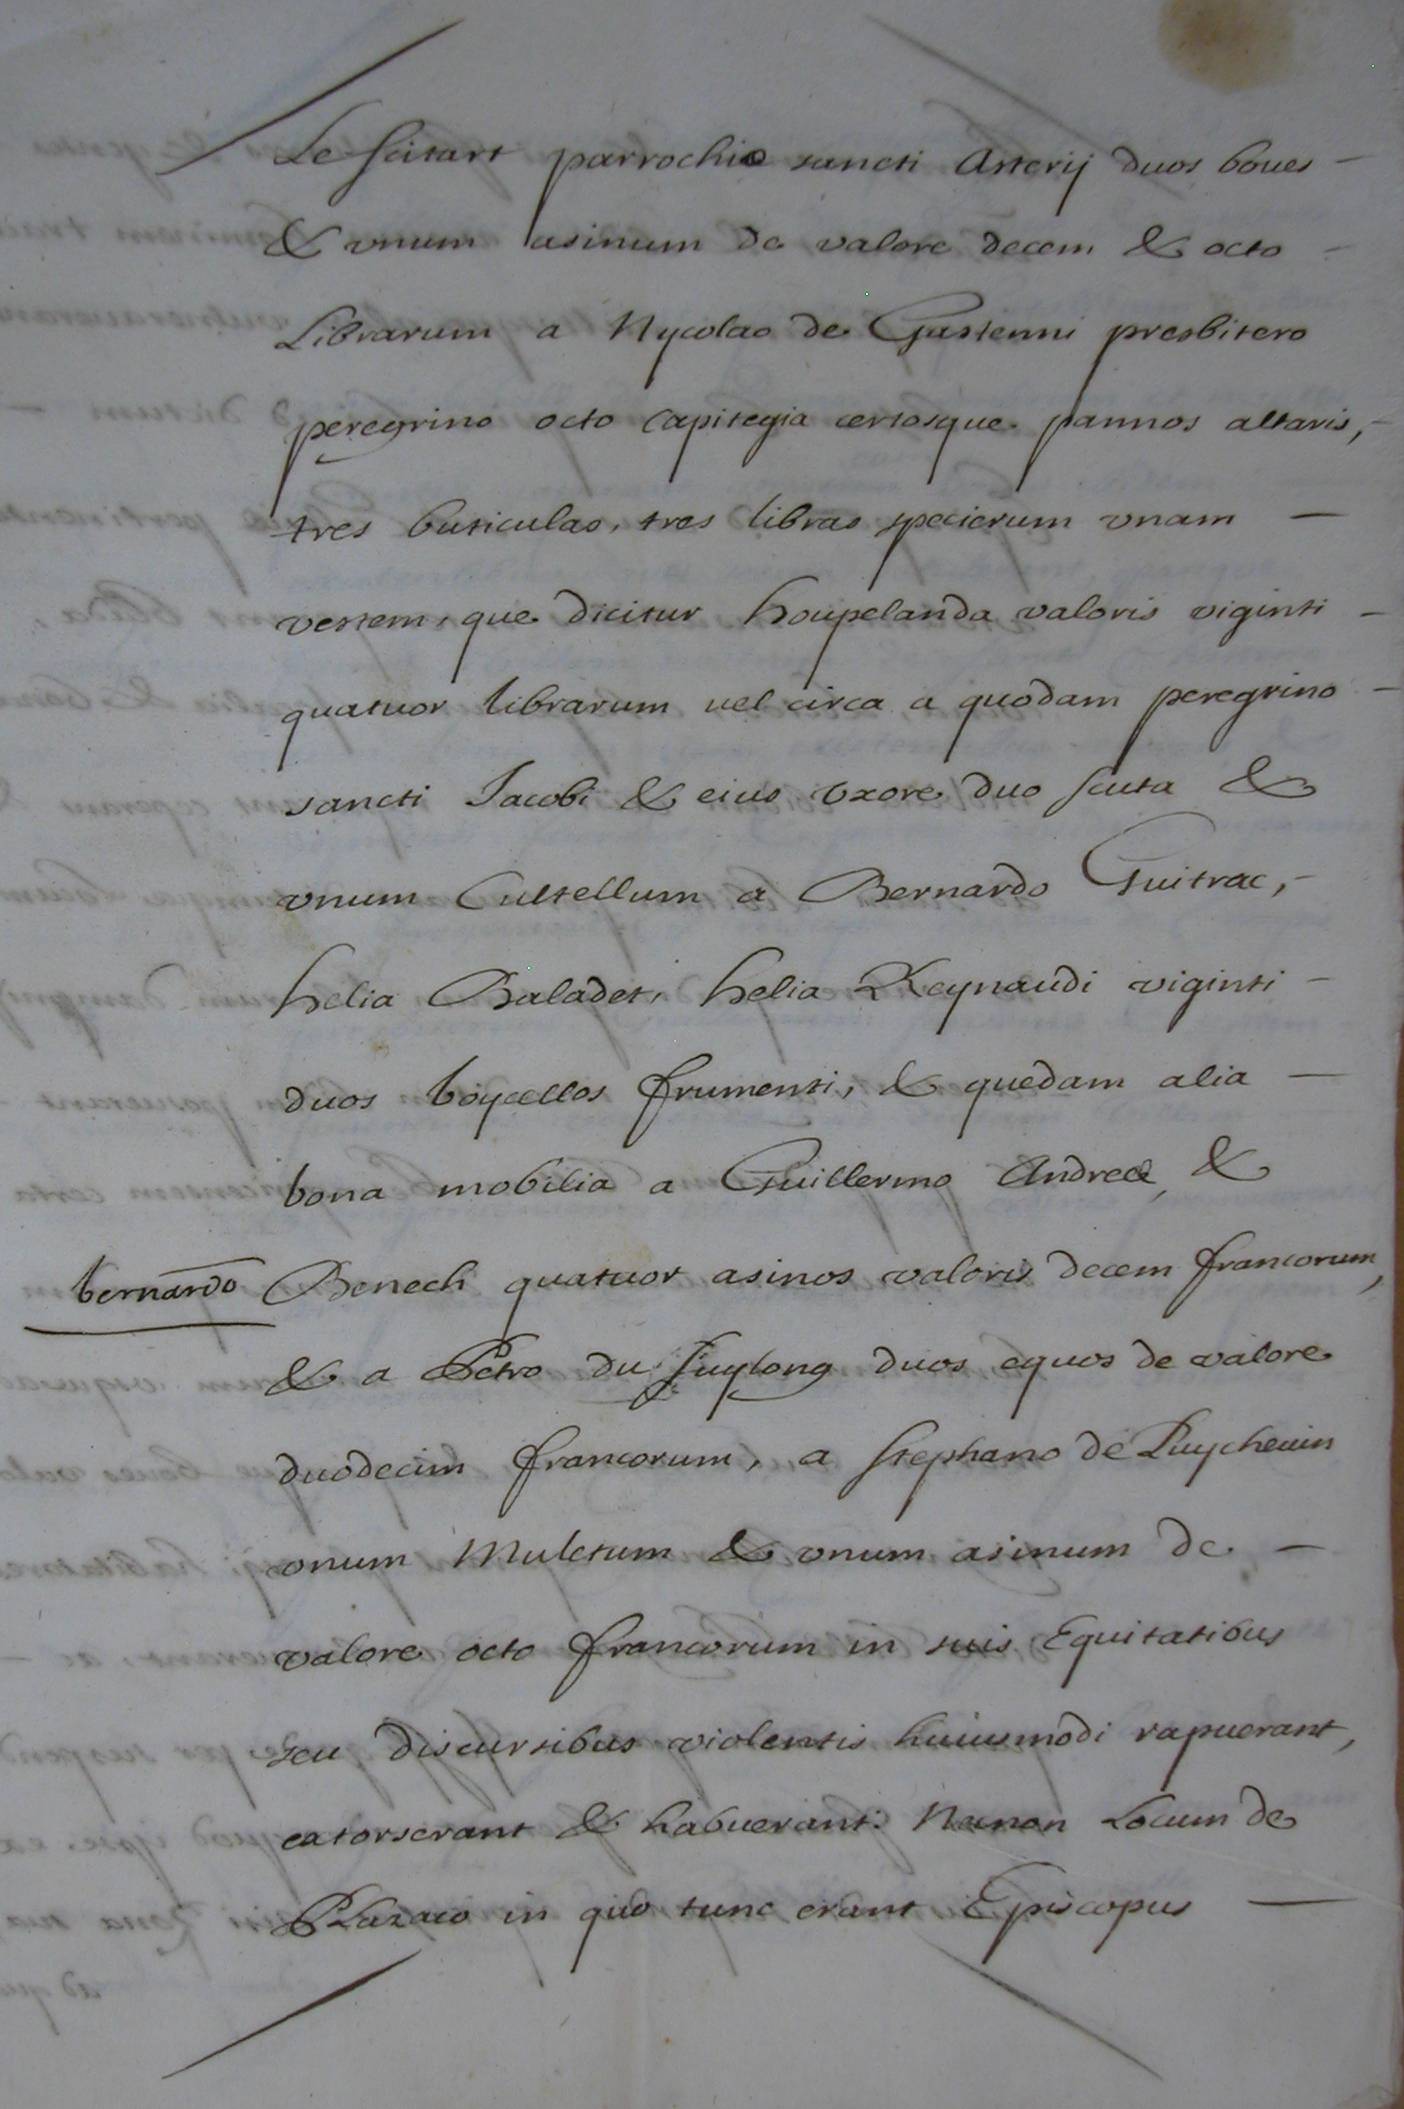 Le Scitart parrochie sancti Asterij duos boues —
& vnum asinum de valore decem & octo —
Librarum a Nycolao de Gastenni presbitero
peregrino octo capitegia certosque pannos altaris, —
tres buticulas, tres libras specierum vnam —
vestem, que dicitur houpelanda valoris viginti —
quatuor librarum uel circa a quodam peregrino —
sancti Jacobi & eius vxore duo scuta &
vnum Cultellum a Bernardo Guitrac, —
helia Baladet, helia Reynaudi viginti —
duos boycellos frumenti, & quedam alia —
bona mobilia a Guillermo Andree, &
bernardo Benech quatuor asinos valoris decem francorum,
& a Petro du Puylong duos equos de valore
duodecim francorum, a Stephano de Puycheuin
vnum Muletum & vnum asinum de —
valore octo francorum in suis Equitatibus
seu discursibus violentis huiusmodi rapuerant,
extorserant & habuerant: Necnon Locum de
Plazaco in quo tunc erant Episcopus —